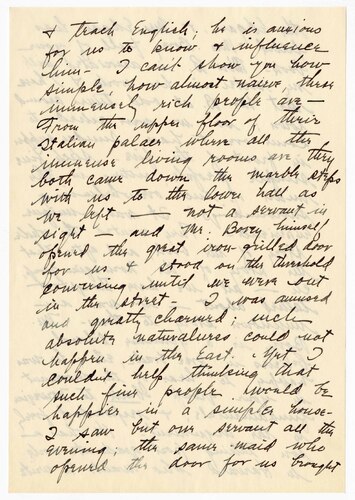 & teach English; he is anxious
for us to know & influence
him - I can't show you how
simple, how almost naive, these
immensely rich people are -
From the upper floor of their
Italian palace where all the
immense living rooms are they
both came down the marble steps
with us to the lower hall as
we left — not a servant in
sight — and Mr. Bovey himself
opened the great iron-grilled door
for us & stood on the threshold
conversing until we were out
in the street - I was amused
and greatly charmed; such
absolute naturalness could not
happen in the East. Yet I
couldn't help thinking that
such fine people would be
happier in a simpler house -
I saw but one servant all the
evening; the same maid who
opened the door for us brought